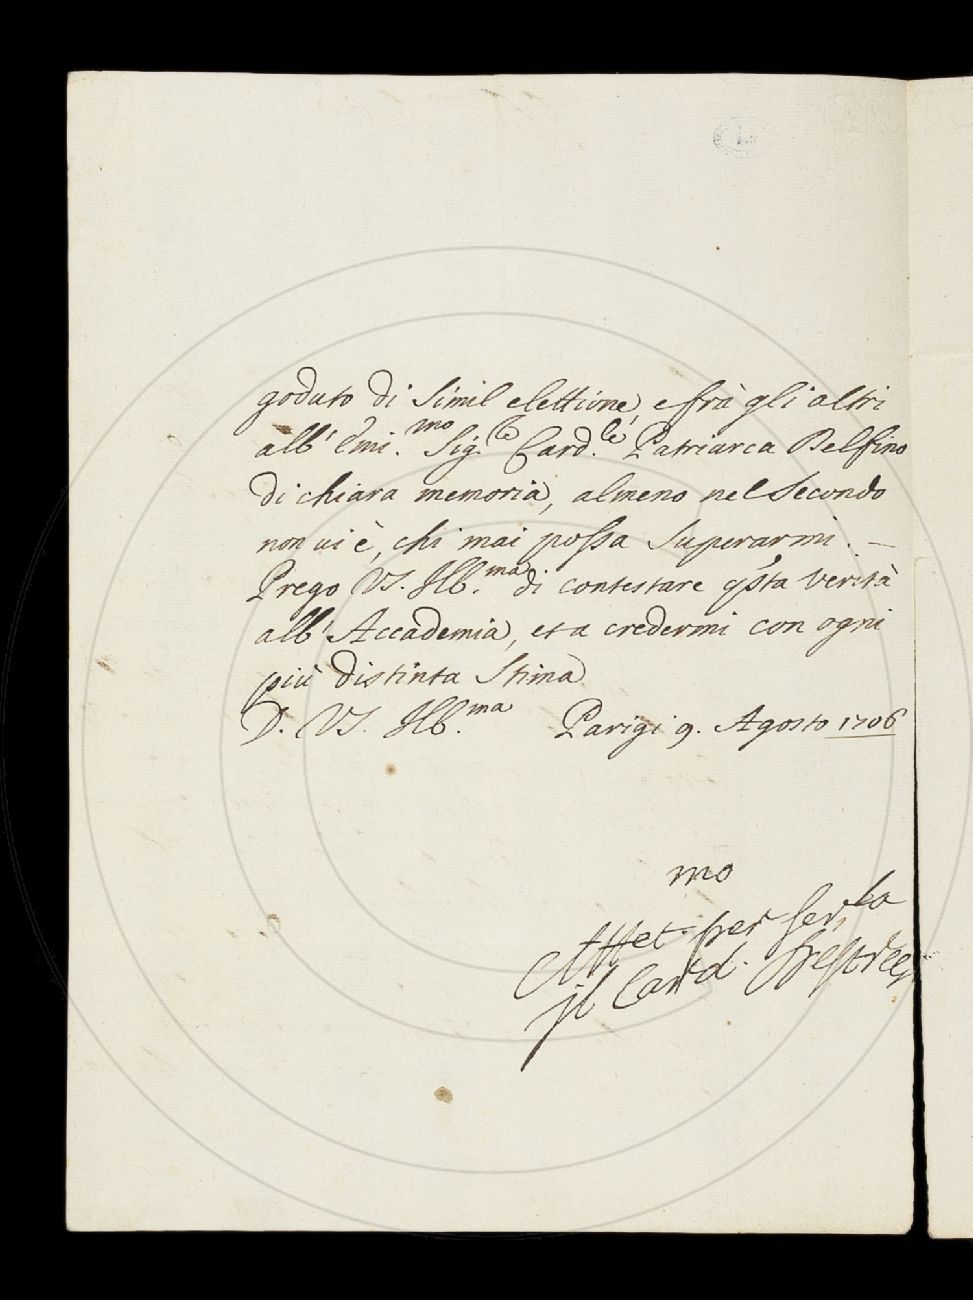 goduto di simil elettione, e frà gli altri
all' Emi.mo Sig.le Card.le Patriarca Delfino
di chiara memoria, almeno nel secondo
non ui è, chi mai possa superarmi. —
Prego VS. Ill.ma di contestare q'sta verità
all' Accademia, et a credermi con ogni
più distinta stima
D. VS. Ill.ma Parigi 9. Agosto 1706
mo
Affet. per ser.la
il Card.